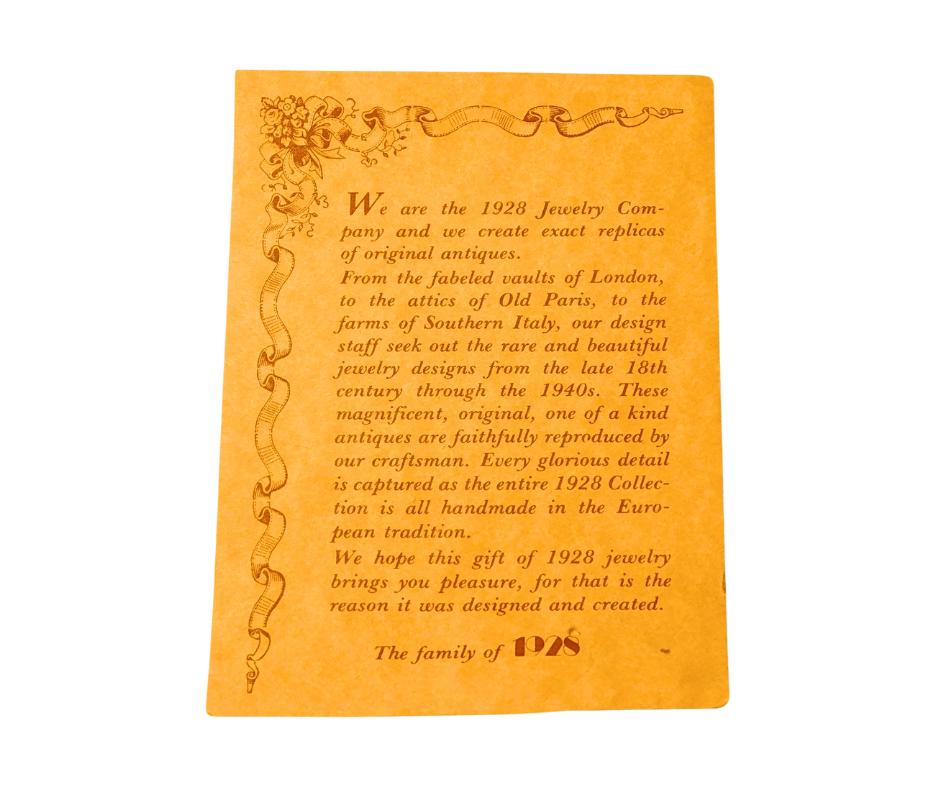 We are the 1928 Jewelry Com-
pany and we create exact replicas
of original antiques.
From the fabeled vaults of London,
to the attics of Old Paris, to the
farms of Southern Italy, our design
staff seek out the rare and beautiful
jewelry designs from the late 18th
century through the 1940s. These
magnificent, original, one of a kind
antiques are faithfully reproduced by
our craftsman. Every glorious detail
is captured as the entire 1928 Collec-
tion is all handmade in the Euro-
pean tradition.
We hope this gift of 1928 jewelry
brings you pleasure, for that is the
reason it was designed and created.
The family of 1928